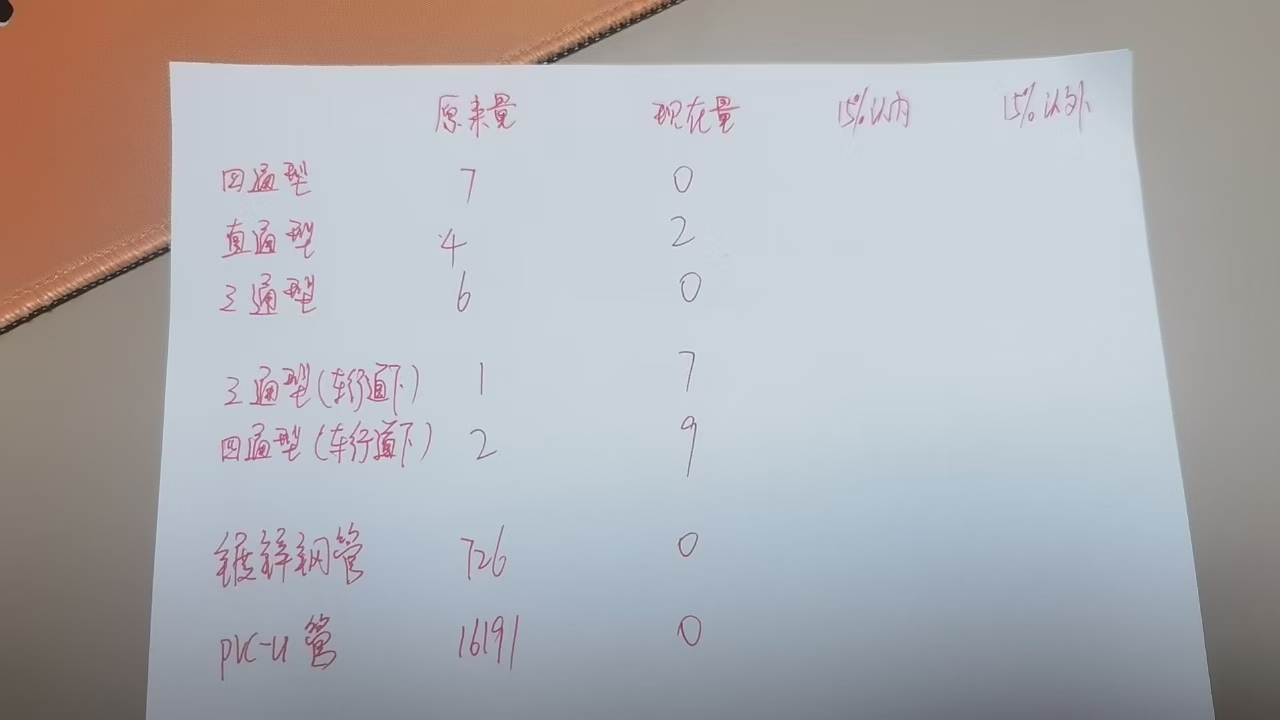 原来量 现在量 15%以内 15%以外
四通型 7 0
直通型 4 2
三通型 6 0
三通型(车行道下) 1 7
四通型(车行道下) 2 9
镀锌钢管 726 0
PVC-U管 16191 0